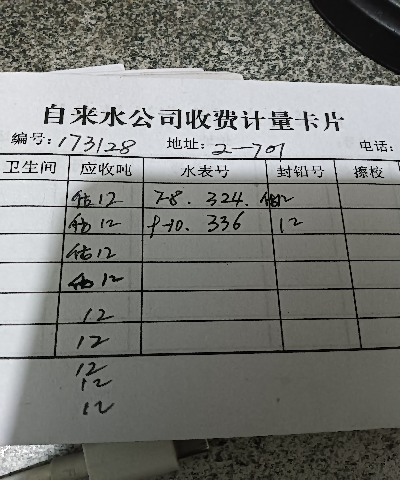 自来水公司收费计量卡片
编号:173128 地址:2-701 电话:
卫生间 应收吨 水表号 封铅号 擦校
估12 7-8. 324. 估12
估12 9-10. 336 12
估12
估12
12
12
12
12
12